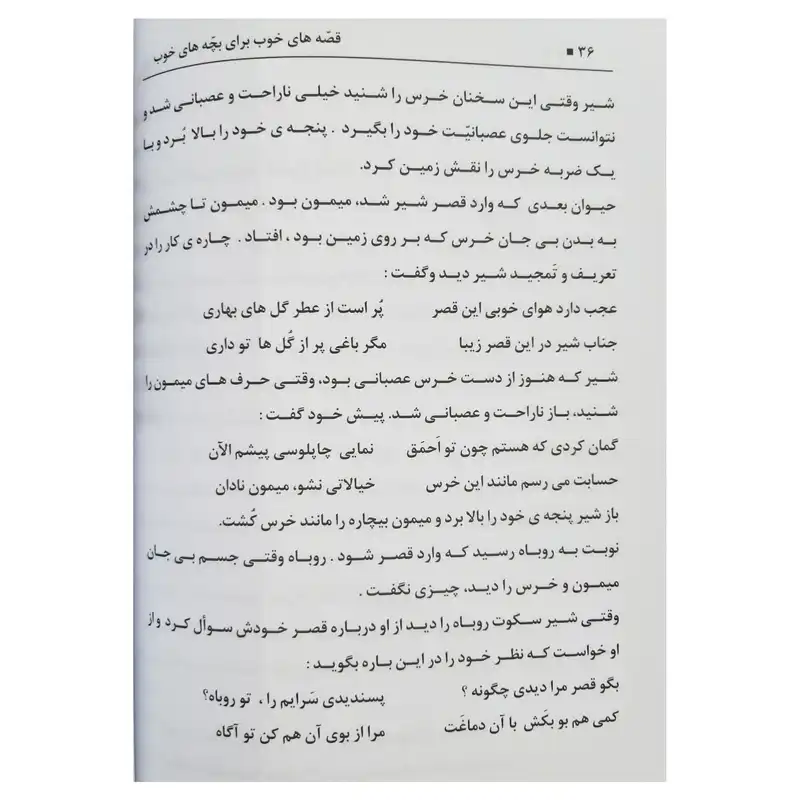 ۳۶ ■ قصّه های خوب برای بچّه های خوب
شیر وقتی این سخنان خرس را شنید خیلی ناراحت و عصبانی شد و
نتوانست جلوی عصبانیّت خود را بگیرد . پنجه ی خود را بالا بُرد و با
یک ضربه خرس را نقش زمین کرد.
حیوان بعدی که وارد قصر شیر شد، میمون بود . میمون تا چشمش
به بدن بی جان خرس که بر روی زمین بود ، افتاد . چاره ی کار را در
تعریف و تَمجید شیر دید وگفت :
عجب دارد هوای خوبی این قصر پُر است از عطر گل های بهاری
جناب شیر در این قصر زیبا مگر باغی پر از گُل ها تو داری
شیر که هنوز از دست خرس عصبانی بود، وقتی حرف های میمون را
شنید، باز ناراحت و عصبانی شد. پیش خود گفت :
گمان کردی که هستم چون تو اَحمَق نمایی چاپلوسی پیشم الآن
حسابت می رسم مانند این خرس خیالاتی نشو، میمون نادان
باز شیر پنجه ی خود را بالا برد و میمون بیچاره را مانند خرس کُشت.
نوبت به روباه رسید که وارد قصر شود . روباه وقتی جسم بی جان
میمون و خرس را دید، چیزی نگفت .
وقتی شیر سکوت روباه را دید از او درباره قصر خودش سوأل کرد و از
او خواست که نظر خود را در این باره بگوید :
بگو قصر مرا دیدی چگونه ؟ پسندیدی سَرایم را ، تو روباه؟
کمی هم بو بکَش با آن دماغَت مرا از بوی آن هم کن تو آگاه